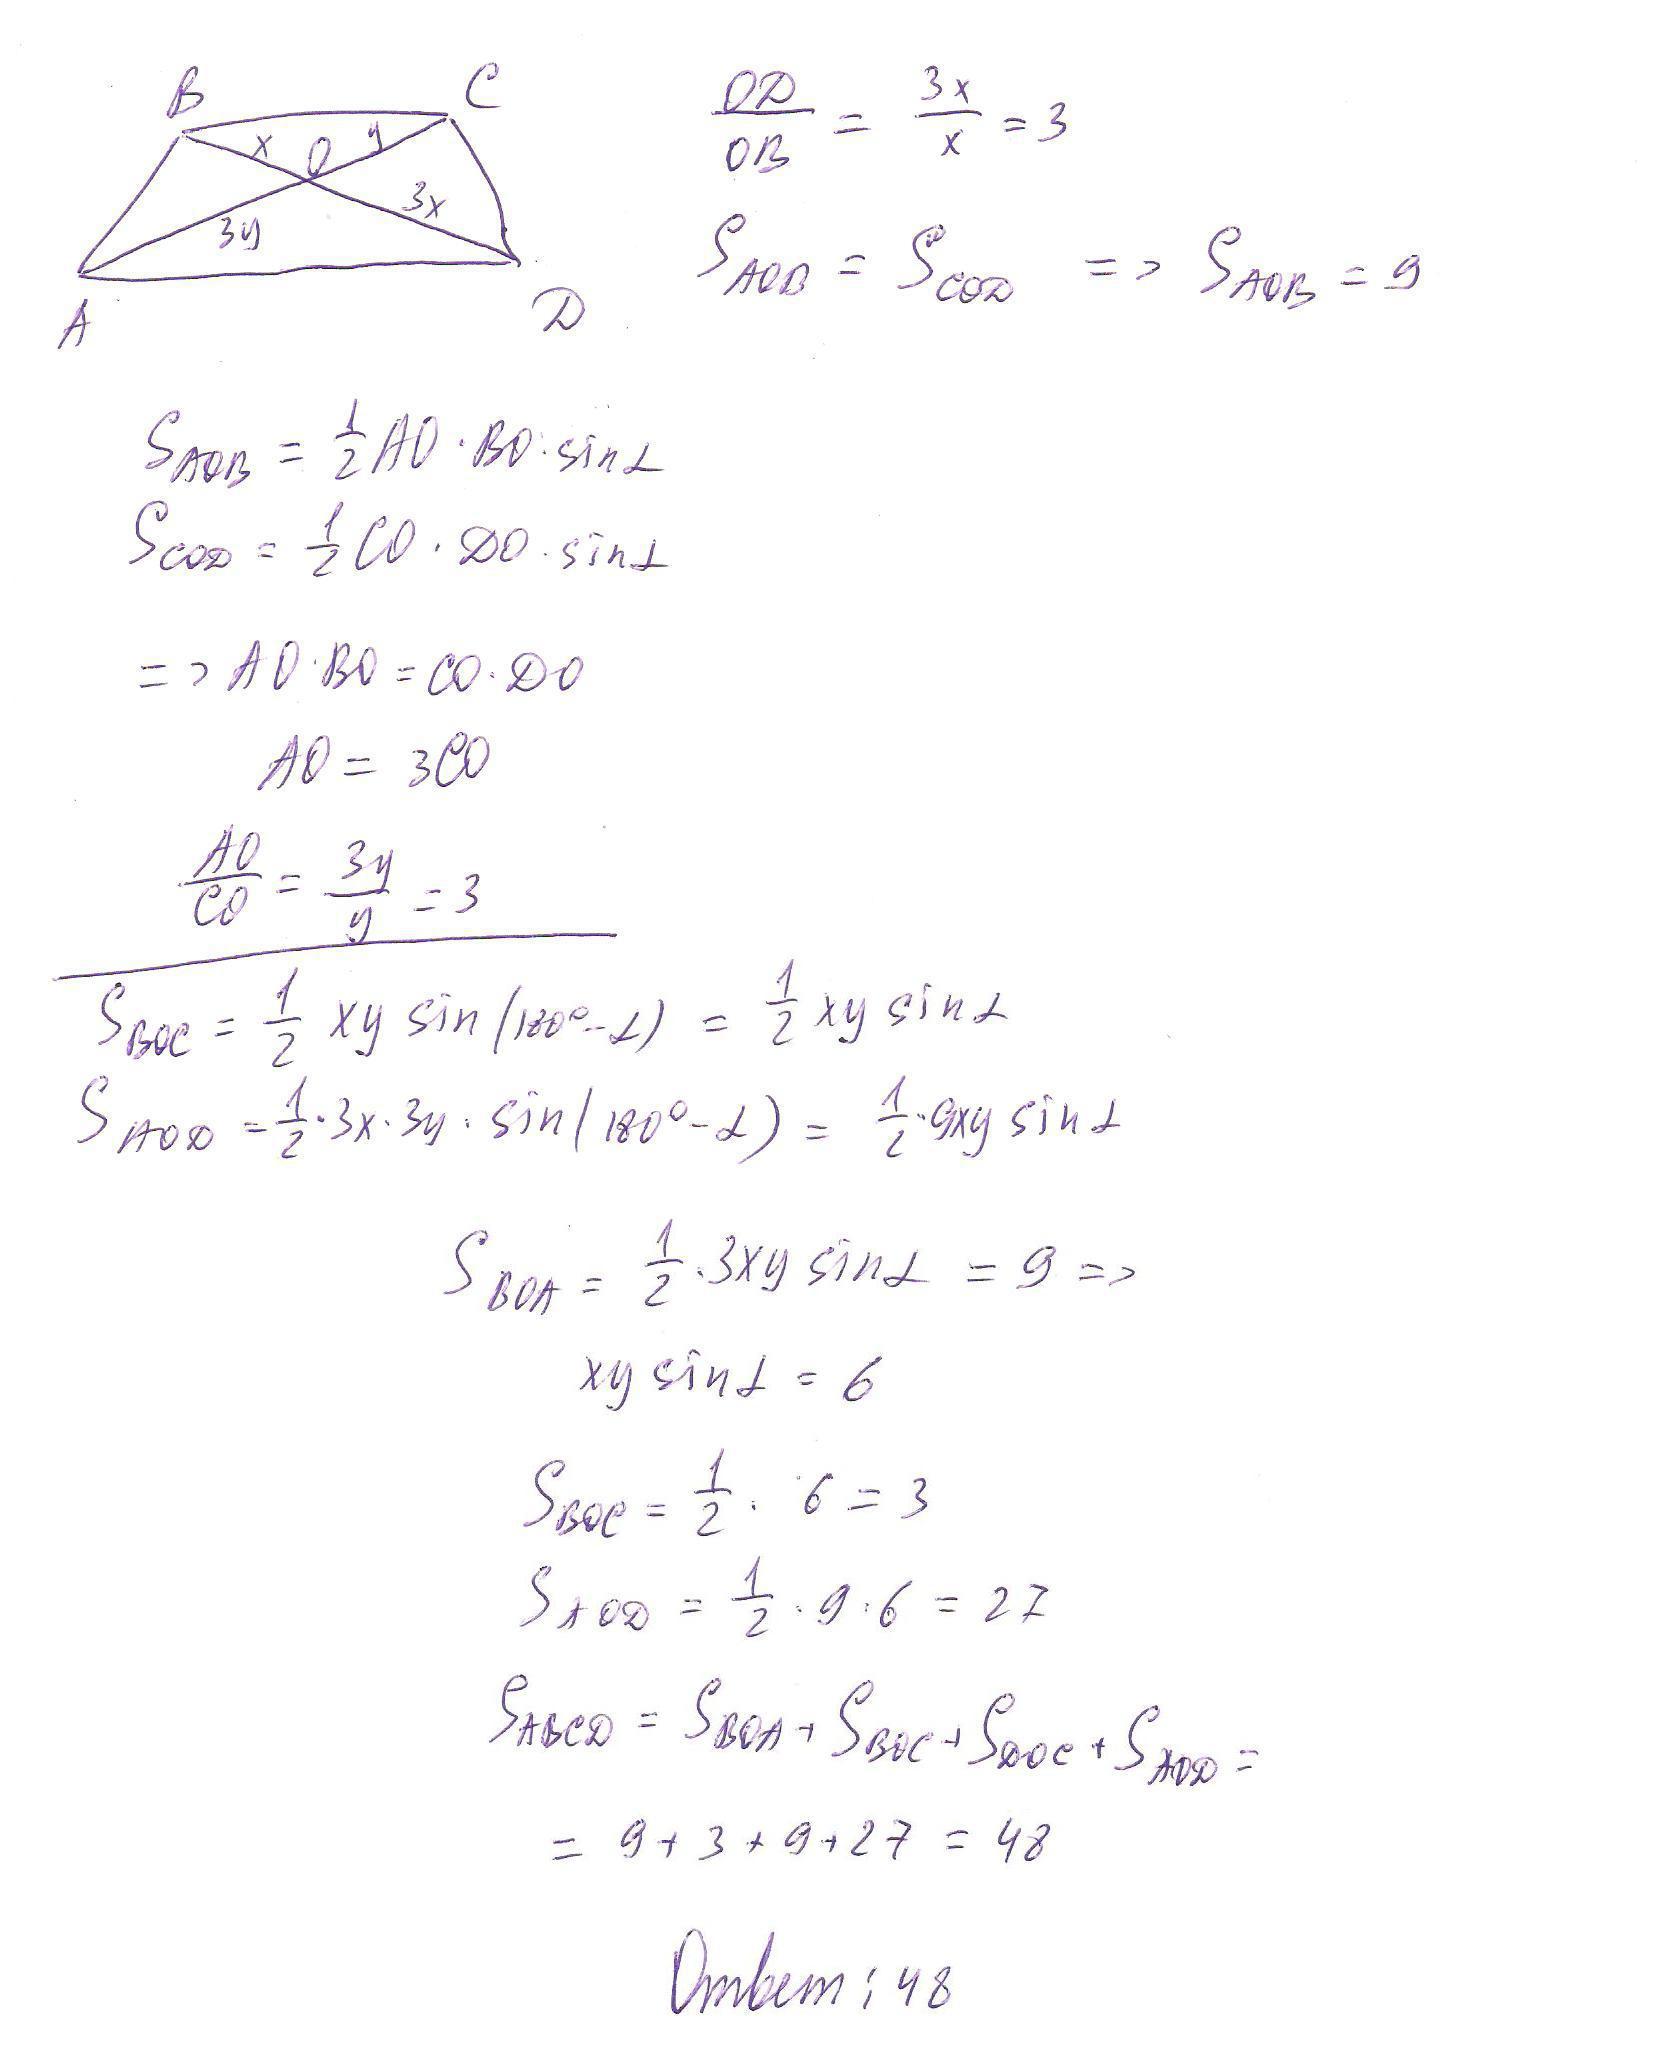 B C
x O y
3y 3x
A D
OD/OB = 3x/x = 3
S_AOB = S_COD => S_AOB = 9
S_AOB = 1/2 AO · BO · sin α
S_COD = 1/2 CO · DO · sin α
=> AO · BO = CO · DO
AO = 3CO
AO/CO = 3y/y = 3
S_BOC = 1/2 xy sin(180° - α) = 1/2 xy sin α
S_AOD = 1/2 · 3x · 3y · sin(180° - α) = 1/2 · 9xy sin α
S_BOA = 1/2 · 3xy sin α = 9 =>
xy sin α = 6
S_BOC = 1/2 · 6 = 3
S_AOD = 1/2 · 9 · 6 = 27
S_ABCD = S_BOA + S_BOC + S_DOC + S_AOD =
= 9 + 3 + 9 + 27 = 48
Ответ: 48